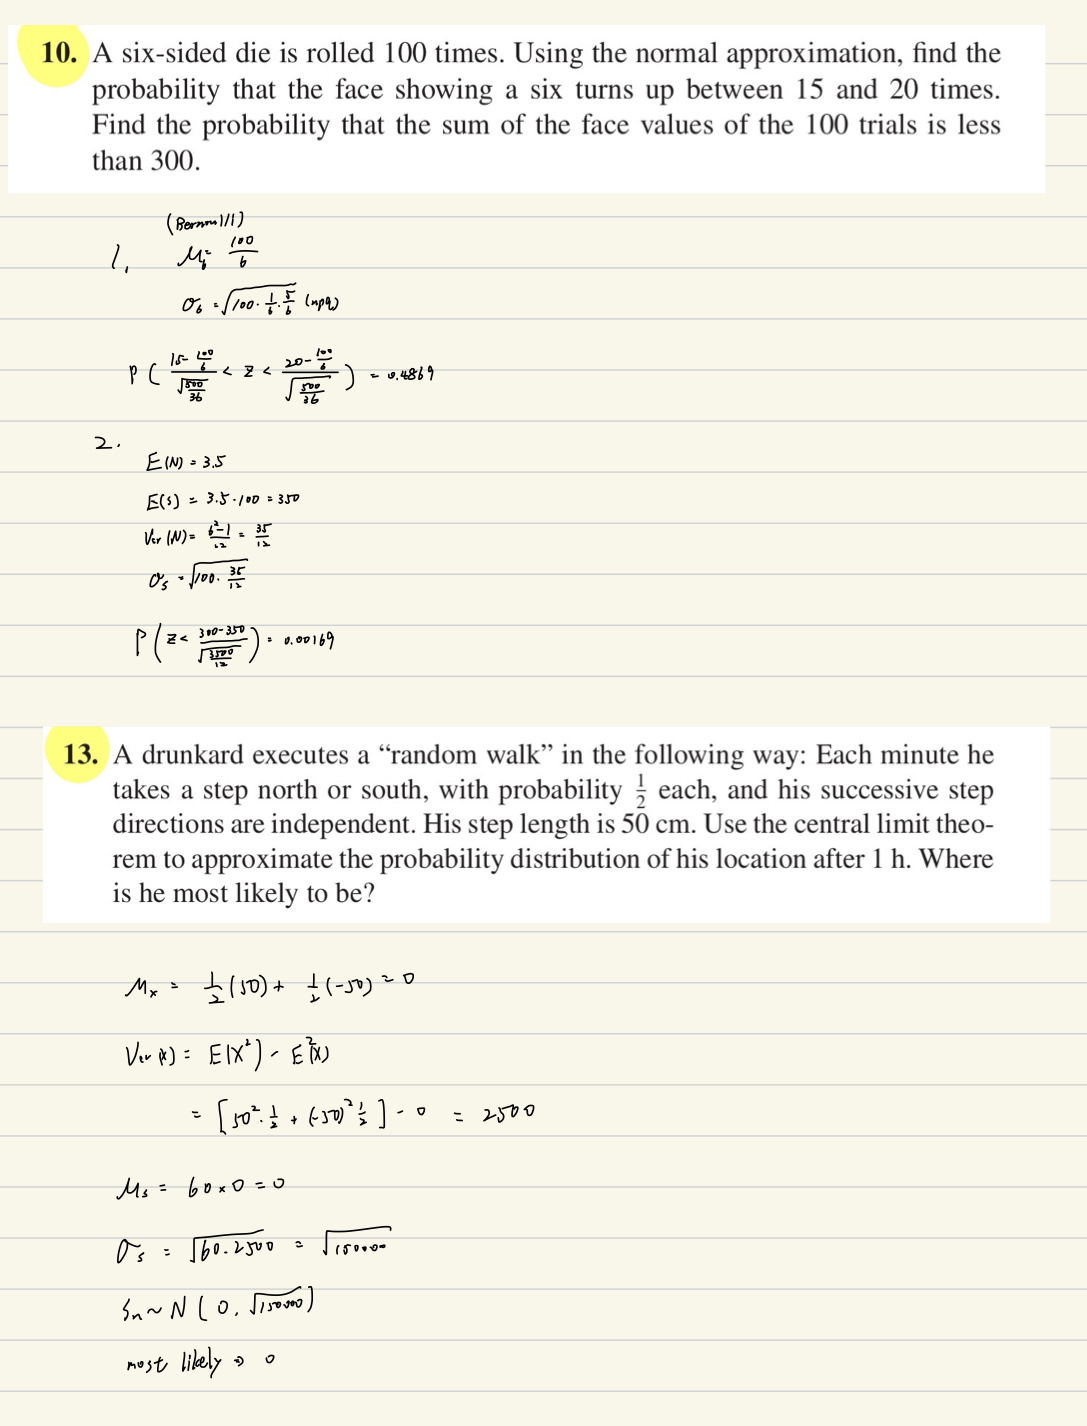 10. A six-sided die is rolled 100 times. Using the normal approximation, find the
probability that the face showing a six turns up between 15 and 20 times.
Find the probability that the sum of the face values of the 100 trials is less
than 300.
(Bernoulli)
1. μ₆ = 100/6
σ₆ = √(100 · 1/6 · 5/6) (npq)
P ( (15 - 100/6)/√(500/36) < Z < (20 - 100/6)/√(500/36) ) = 0.4869
2.
E(N) = 3.5
E(S) = 3.5 · 100 = 350
Var(N) = (6² - 1)/12 = 35/12
σₛ = √(100 · 35/12)
P ( Z < (300 - 350)/√(3500/12) ) = 0.00169
13. A drunkard executes a “random walk” in the following way: Each minute he
takes a step north or south, with probability 1/2 each, and his successive step
directions are independent. His step length is 50 cm. Use the central limit theo-
rem to approximate the probability distribution of his location after 1 h. Where
is he most likely to be?
μₓ = 1/2 (50) + 1/2 (-50) = 0
Var(X) = E(X²) - E²(X)
= [50² · 1/2 + (-50)² 1/2] - 0 = 2500
μₛ = 60 × 0 = 0
σₛ = √(60 · 2500) = √150000
Sₙ ~ N (0, √150000)
most likely ⇒ 0